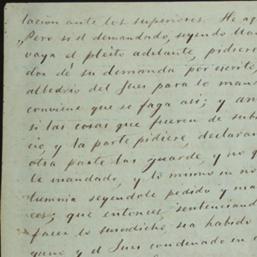 lacion ante los superiores. He aq
"Pero si el demandado, seyendo lla
vaya el pleito adelante, pidiere
don de su demanda por escrito,
albedrio del Jues para lo man
conviene que se faga asi; y an
si las cosas que fueren de sub
cio, y la parte pidiere, declaran
otra parte las guarde, y no q
le mandado, y lo mismo en no
tummia seyendole pedido y ma
cos; que entonces, sentenciand
facer lo susodicho, sea habido
guno y el Jues condenado en c